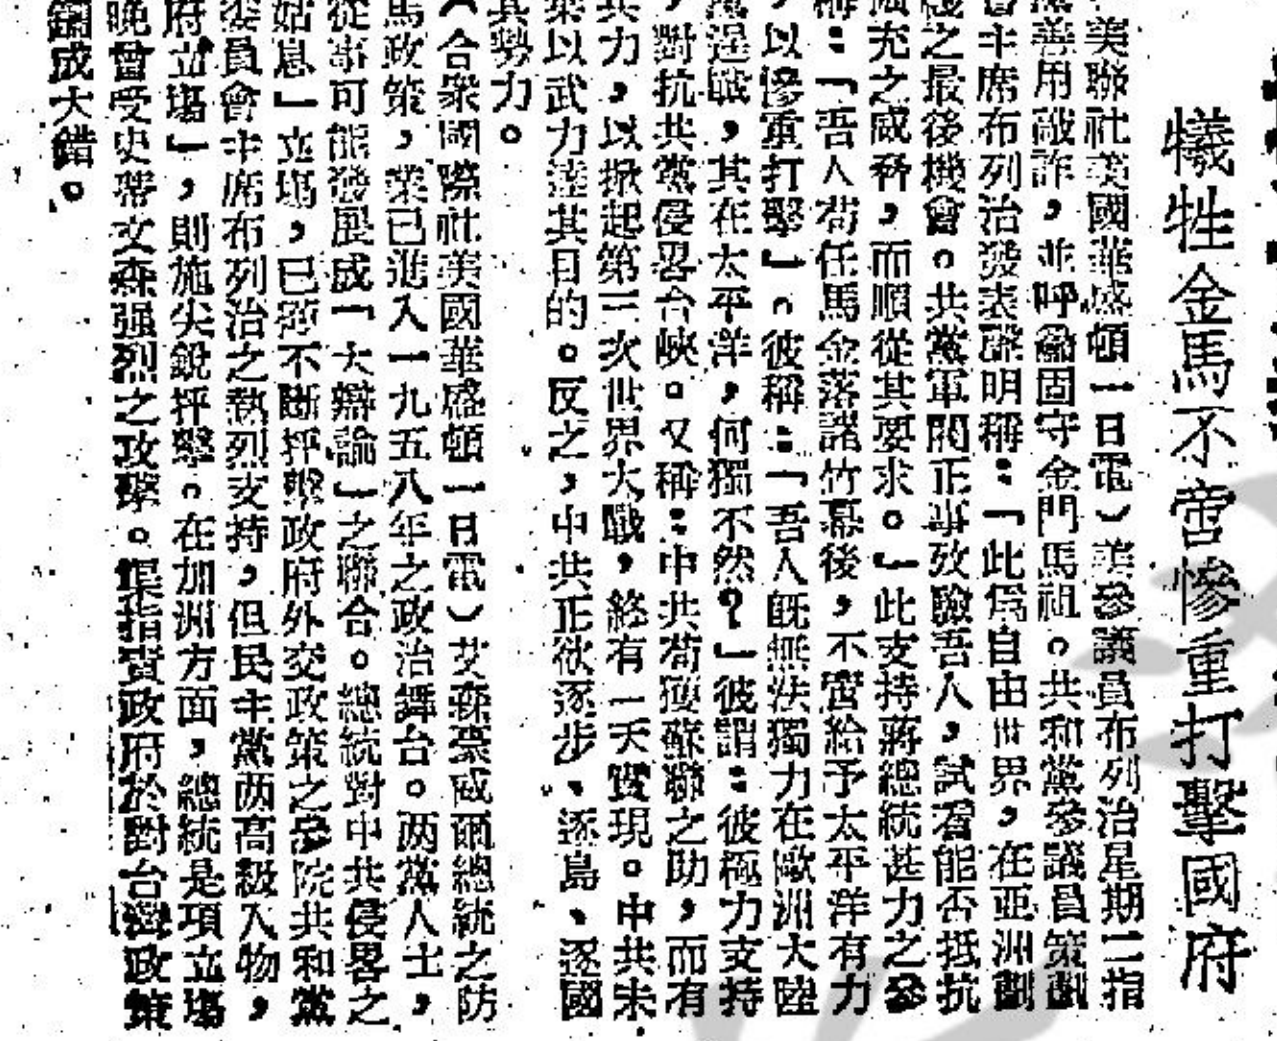 犧牲金馬不啻慘重打擊國府
美聯社美國華盛頓一日電）美參議員布列治星期二指
善用敲詐，並呼籲固守金門馬祖。共和黨參議員策劃
會主席布列治發表聲明稱：「此爲自由世界，在亞洲劃
綫之最後機會。共黨軍閥正事攷驗吾人，試看能否抵抗
充之威脅，而順從其要求。」此支持蔣總統甚力之參
稱：「吾人苟任馬金落諸竹幕後，不啻給予太平洋有力
，以慘重打擊」。彼稱：「吾人既無法獨力在歐洲大陸
黨逞戰，其在太平洋，何獨不然？」彼謂：彼極力支持
，對抗共黨侵畧台峽。又稱：中共苟獲蘇聯之助，而有
其力，以掀起第三次世界大戰，終有一天實現。中共未
業以武力達其目的。反之，中共正欲逐步、逐島、逐國
其勢力。
（合衆國際社美國華盛頓一日電）艾森豪威爾總統之防
馬政策，業已進入一九五八年之政治舞台。两黨人士，
從事可能發展成「大辯論」之聯合。總統對中共侵畧之
姑息」立塲，已獲不斷抨擊政府外交政策之參院共和黨
委員會主席布列治之熱烈支持，但民主黨两高級人物，
府立塲」，則施尖銳抨擊。在加洲方面，總統是項立塲
晚曾受史蒂文森强烈之攻擊。渠指責政府於對台灣政策
鑄成大錯。